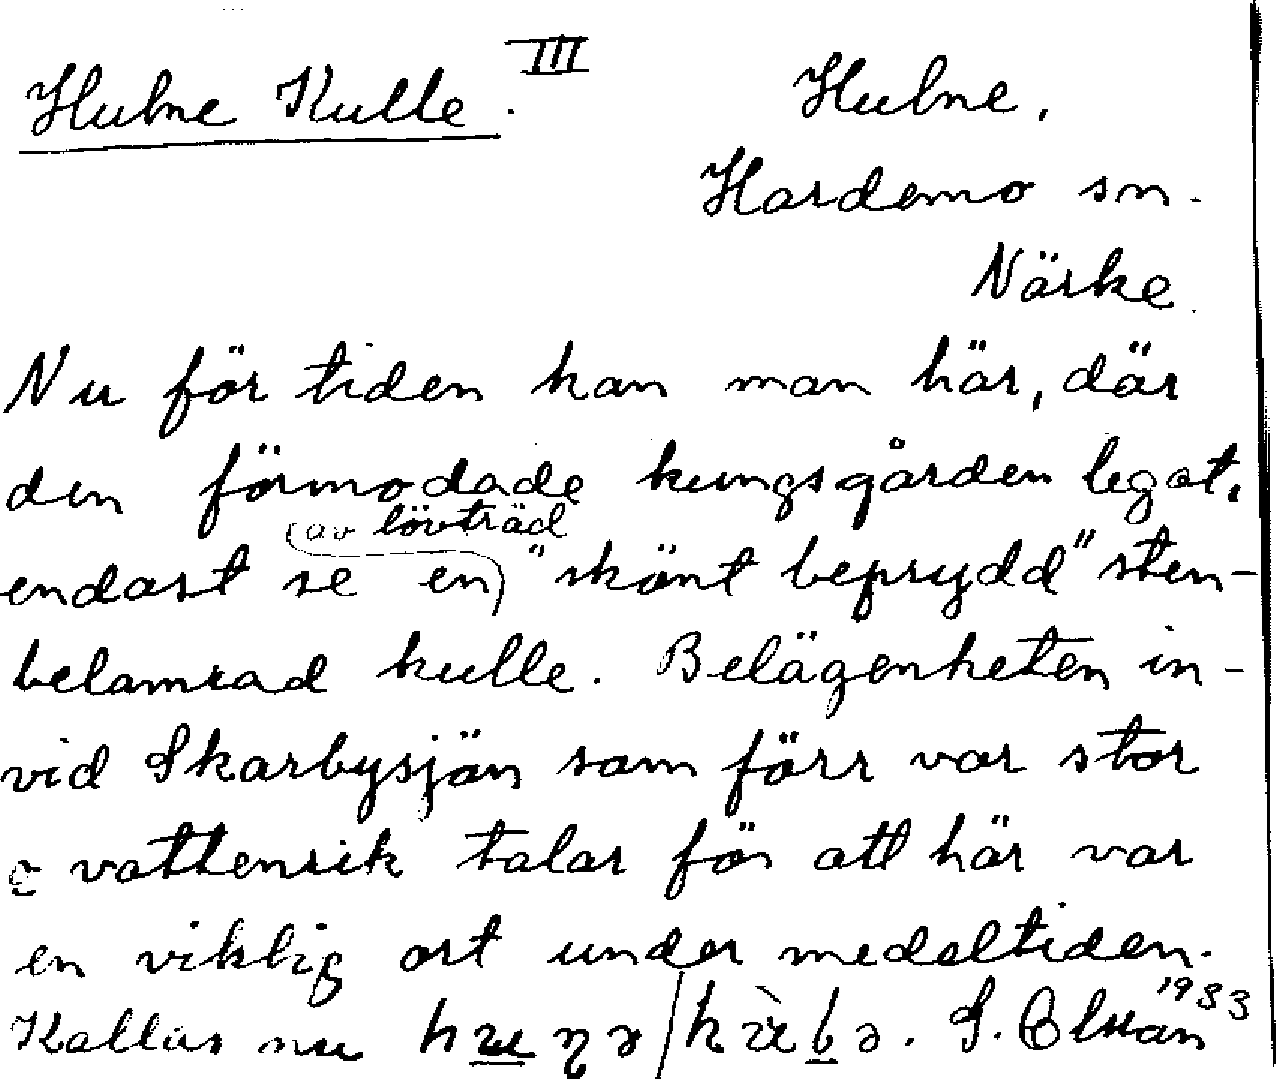 Hulne Kulle. III
Hulne,
Hardemo sn.
Närke
Nu för tiden kan man här, där
den förmodade kungsgården legat,
av lövträd
endast se en "skönt beprydd" sten-
belamrad kulle. Belägenheten in-
vid Skarbysjön som förr var stor
o vattenrik talar för att här var
en viktig ort under medeltiden.
Kallas nu
1933